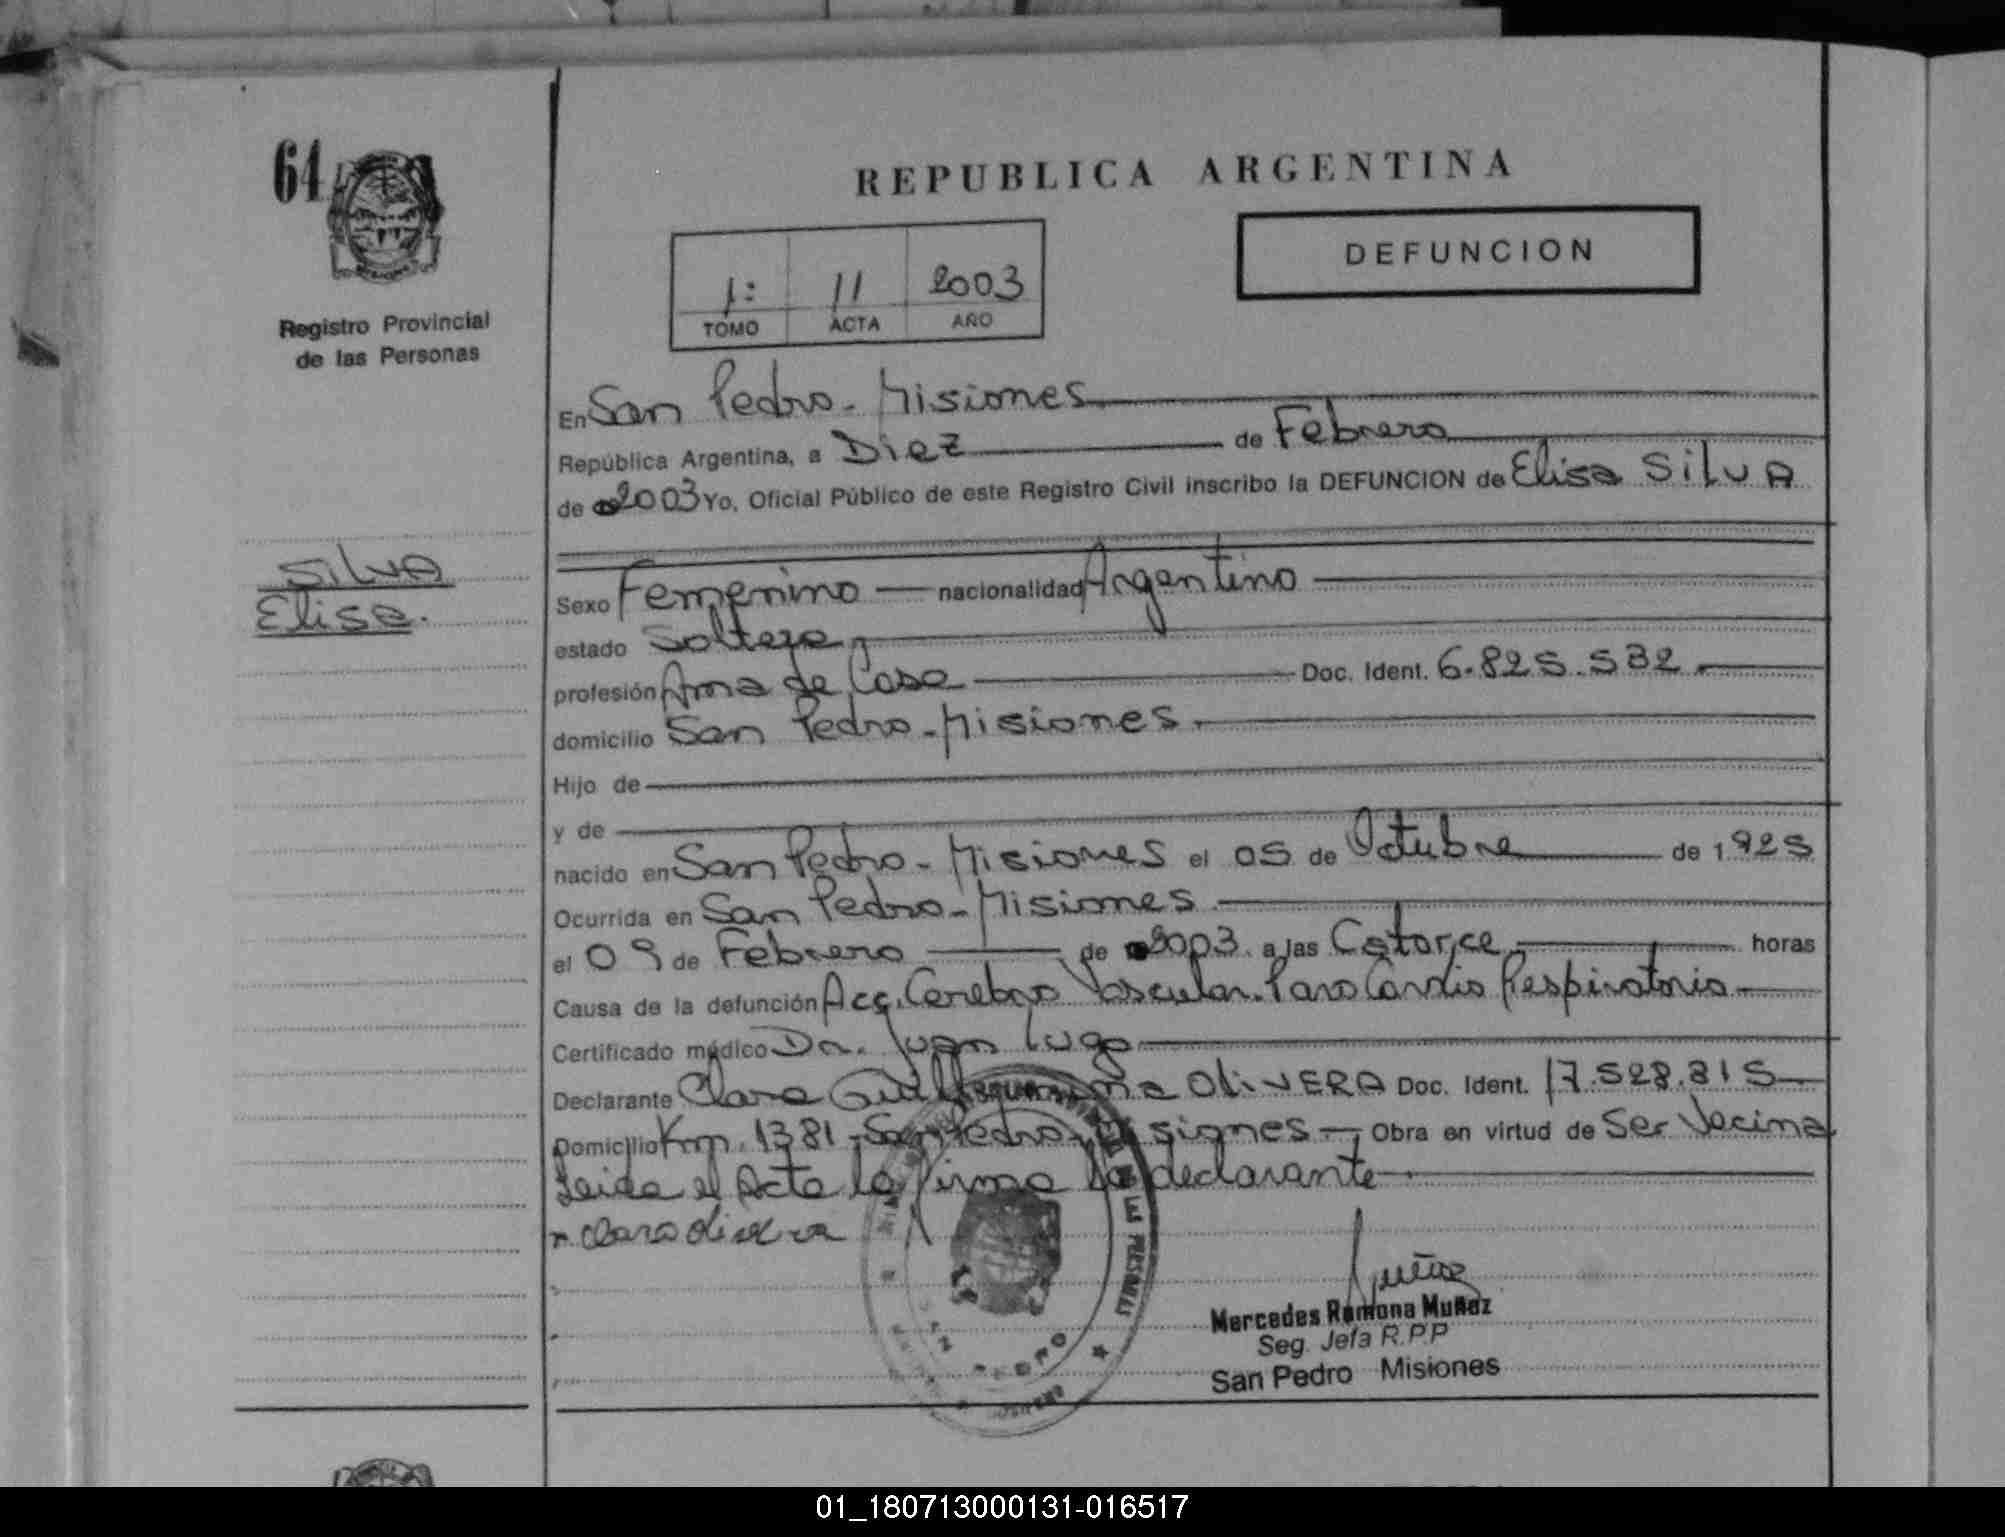 64
Registro Provincial
de las Personas
REPUBLICA ARGENTINA
1: 11 2003
TOMO ACTA AÑO
DEFUNCION
En San Pedro - Misiones
República Argentina, a Diez de Febrero
de 2003 Yo, Oficial Público de este Registro Civil inscribo la DEFUNCION de Elisa SilvA
SilvA
Elisa.
Sexo Femenino nacionalidad Argentino
estado Soltera
profesión Ama de Casa Doc. Ident. 6.825.532
domicilio San Pedro - Misiones.
Hijo de
y de
nacido en San Pedro - Misiones el 05 de Octubre de 1925
Ocurrida en San Pedro - Misiones
el 09 de Febrero de 2003. a las Catorce horas
Causa de la defunción Acc. Cerebro Vascular. Paro Cardio Respiratorio
Certificado médico Dr. Juan Lugo
Declarante Clara Guillermina OliVERA Doc. Ident. 17.528.815
Domicilio Km. 1381 - San Pedro - Misiones Obra en virtud de Ser Vecina
Leida el Acta la firma la declarante
Clara Olivera
DE LAS PERSONAS
SAN PEDRO
Mercedes Ramona Muñoz
Seg. Jefa R.P.P
San Pedro Misiones
01_180713000131-016517